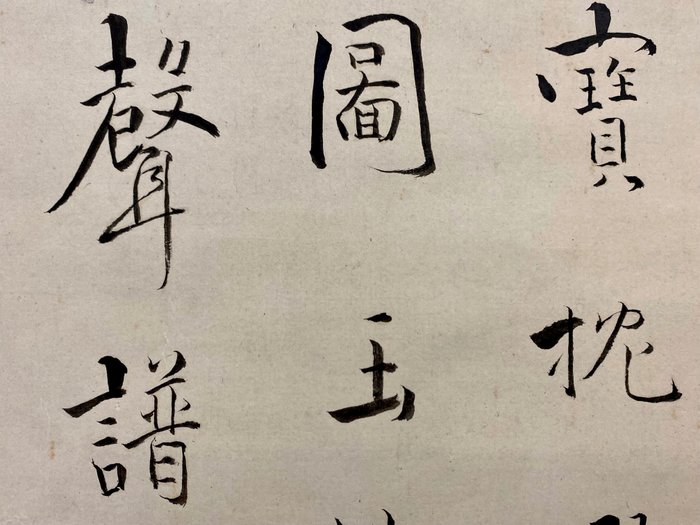 寶枕
圖玉
聲譜